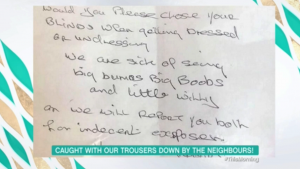 Would you Please close your
BLINDS when getting Dressed
or undressing
we are sick of seing
big bumas Big Boobs
and little willy
or we will Report you both
for indecent exposer.
CAUGHT WITH OUR TROUSERS DOWN BY THE NEIGHBOURS!
#ThisMorning